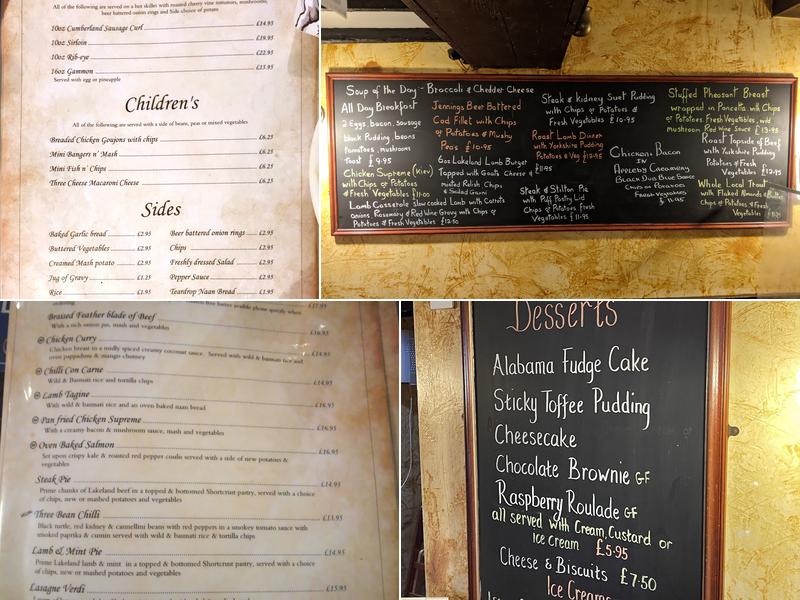 All of the following are served on a hot skillet with roasted cherry vine tomatoes, mushrooms,
beer battered onion rings and Side choice of potato
10oz Cumberland Sausage Curl £14.95
10oz Sirloin £19.95
10oz Rib-eye £22.95
16oz Gammon £15.95
Served with egg or pineapple
Children's
All of the following are served with a side of beans, peas or mixed vegetables
Breaded Chicken Goujons with chips £6.25
Mini Bangers n' Mash £6.25
Mini Fish n' Chips £6.25
Three Cheese Macaroni Cheese £6.25
Sides
Baked Garlic bread £2.95
Buttered Vegetables £2.95
Creamed Mash potato £2.95
Jug of Gravy £1.25
Rice £1.95
Beer battered onion rings £2.95
Chips £2.95
Freshly dressed Salad £2.95
Pepper Sauce £2.95
Teardrop Naan Bread £1.95
Soup of the Day - Broccoli & Chedder Cheese
All Day Breakfast
2 Eggs, bacon, sausage
black Pudding, beans
tomatoes, mushrooms
Toast £9.95
Chicken Supreme (Kiev)
with Chips or Potatoes
& Fresh Vegetables £11.00
Lamb Casserole slow cooked Lamb with Carrots
onions, Rosemary & Red Wine Gravy with Chips or
Potatoes & Fresh Vegetables £12.50
Jennings Beer Battered
Cod Fillet with Chips
or Potatoes & Mushy
Peas £10.95
6oz Lakeland Lamb Burger
Topped with Goats Cheese &
minted Relish Chips
& Salad Garni
Steak & Kidney Suet Pudding
with Chips or Potatoes &
Fresh Vegetables £10.95
Roast Lamb Dinner
with Yorkshire Pudding
Potatoes & Veg £12.95
Steak & Stilton Pie
with Puff Pastry Lid
Chips or Potatoes Fresh
Vegetables £11.95
Chicken, Bacon
in
Appleby Creamery
Black Dub Blue Sauce
Chips or Potatoes
Fresh Vegetables
£11.95
Stuffed Pheasant Breast
wrapped in Pancetta with Chips
or Potatoes, Fresh Vegetables, wild
mushroom Red Wine Sauce £13.95
Roast Topside of Beef
with Yorkshire Pudding
Potatoes & Fresh
Vegetables £12.95
Whole Local Trout
with Flaked Almonds & Butter
Chips or Potatoes & Fresh
Vegetables
£17.95
Braised Feather blade of Beef £16.95
With a rich onion jus, mash and vegetables
Chicken Curry £14.95
Chicken breast in a mildly spiced creamy coconut sauce. Served with wild & basmati rice and
oven pappadums & mango chutney
Chilli Con Carne £14.95
Wild & Basmati rice and tortilla chips
Lamb Tagine £16.95
With wild & basmati rice and an oven baked naan bread
Pan fried Chicken Supreme £16.95
With a creamy bacon & mushroom sauce, mash and vegetables
Oven Baked Salmon £16.95
Set upon crispy kale & roasted red pepper coulis served with a side of new potatoes &
vegetables
Steak Pie £14.95
Prime chunks of Lakeland beef in a topped & bottomed Shortcrust pastry, served with a choice
of chips, new or mashed potatoes and vegetables
Three Bean Chilli £13.95
Black turtle, red kidney & cannellini beans with red peppers in a smokey tomato sauce with
smoked paprika & cumin served with wild & basmati rice & tortilla chips
Lamb & Mint Pie £14.95
Prime Lakeland lamb & mint in a topped & bottomed Shortcrust pastry, served with a choice
of chips, new or mashed potatoes and vegetables
Lasagne Verdi £15.95
Desserts
Alabama Fudge Cake
Sticky Toffee Pudding
Cheesecake
Chocolate Brownie GF
Raspberry Roulade GF
all served with Cream, Custard or
Ice cream £5.95
Cheese & Biscuits £7.50
Ice Creams